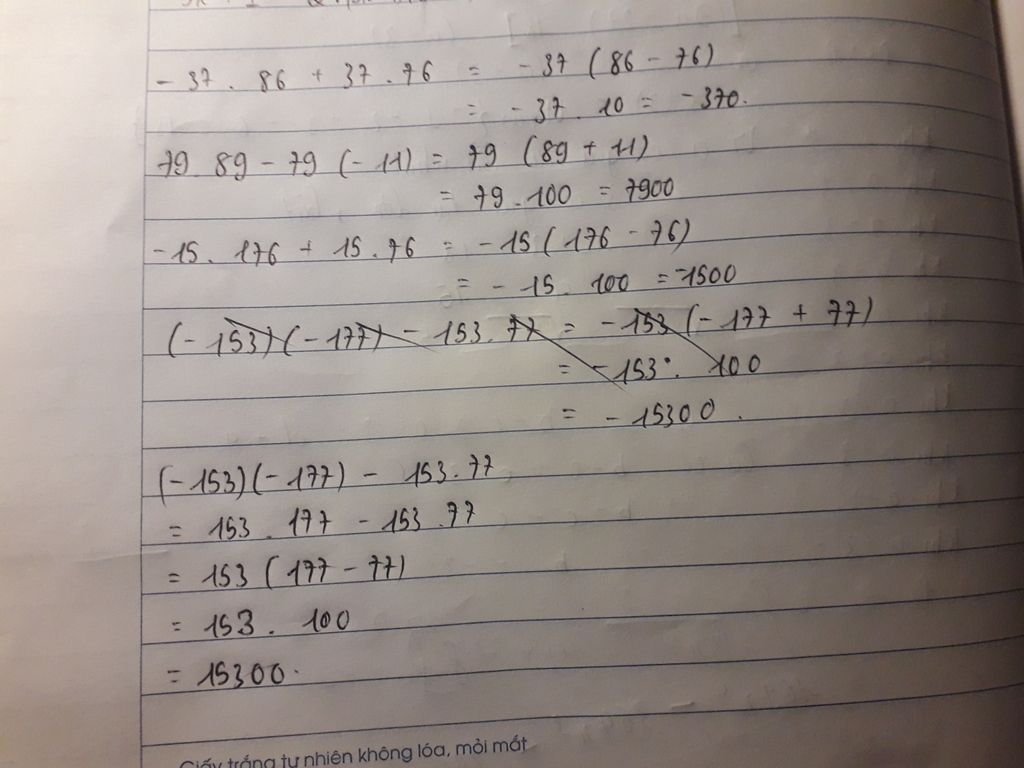 - 37 . 86 + 37 . 76 = - 37 ( 86 - 76)
= - 37 . 10 = - 370.
79 . 89 - 79 (- 11) = 79 (89 + 11)
= 79 . 100 = 7900
- 15 . 176 + 15 . 76 = - 15 ( 176 - 76)
= - 15 . 100 = -1500
(- 153) (- 177) - 153 . 77 = - 153 (- 177 + 77)
= - 153 . 100
= - 15300 .
(- 153) (- 177) - 153 . 77
= 153 . 177 - 153 . 77
= 153 ( 177 - 77)
= 153 . 100
= 15300 .
Giấy trắng tự nhiên không lóa, mỏi mắt